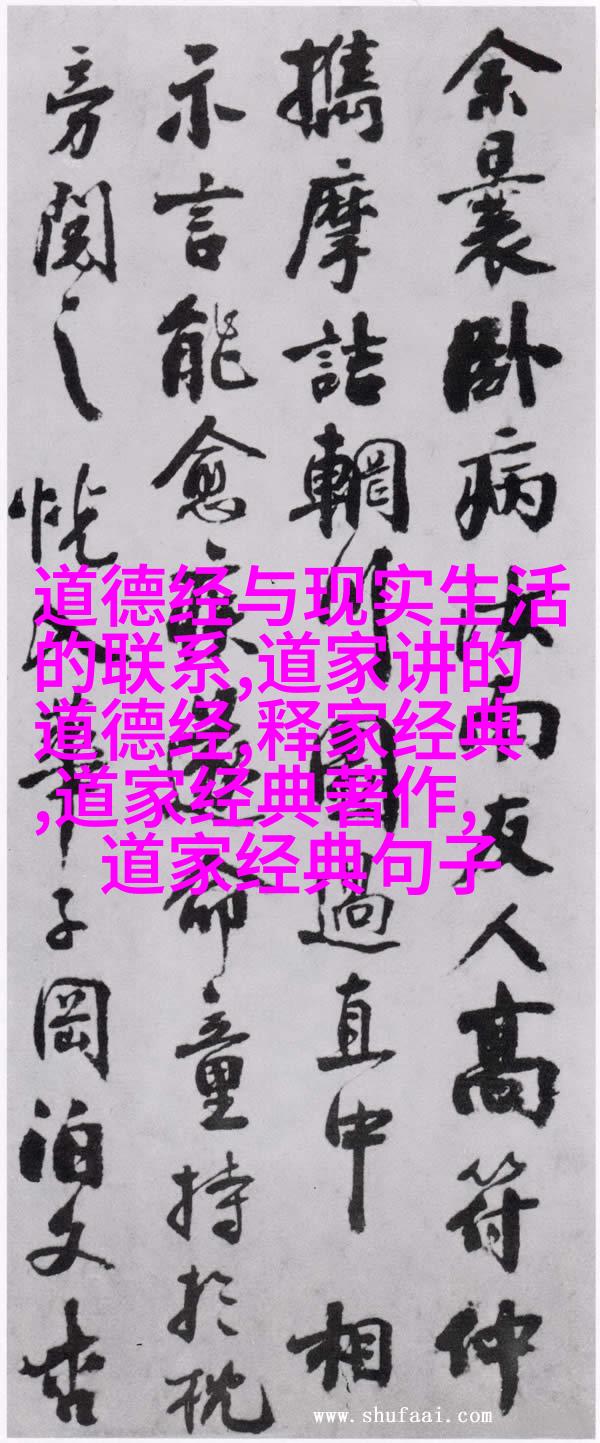 余曩卧病汝南友人高符仲
攜摩詰輞川圖過直中相
示言能愈疾遂命童持於枕
旁閱之恍入華子岡泊文杏
道德经与现实生活
的联系,道家讲的
道德经,释家经典
,道家经典著作,
道家经典句子
www.shufaai.com